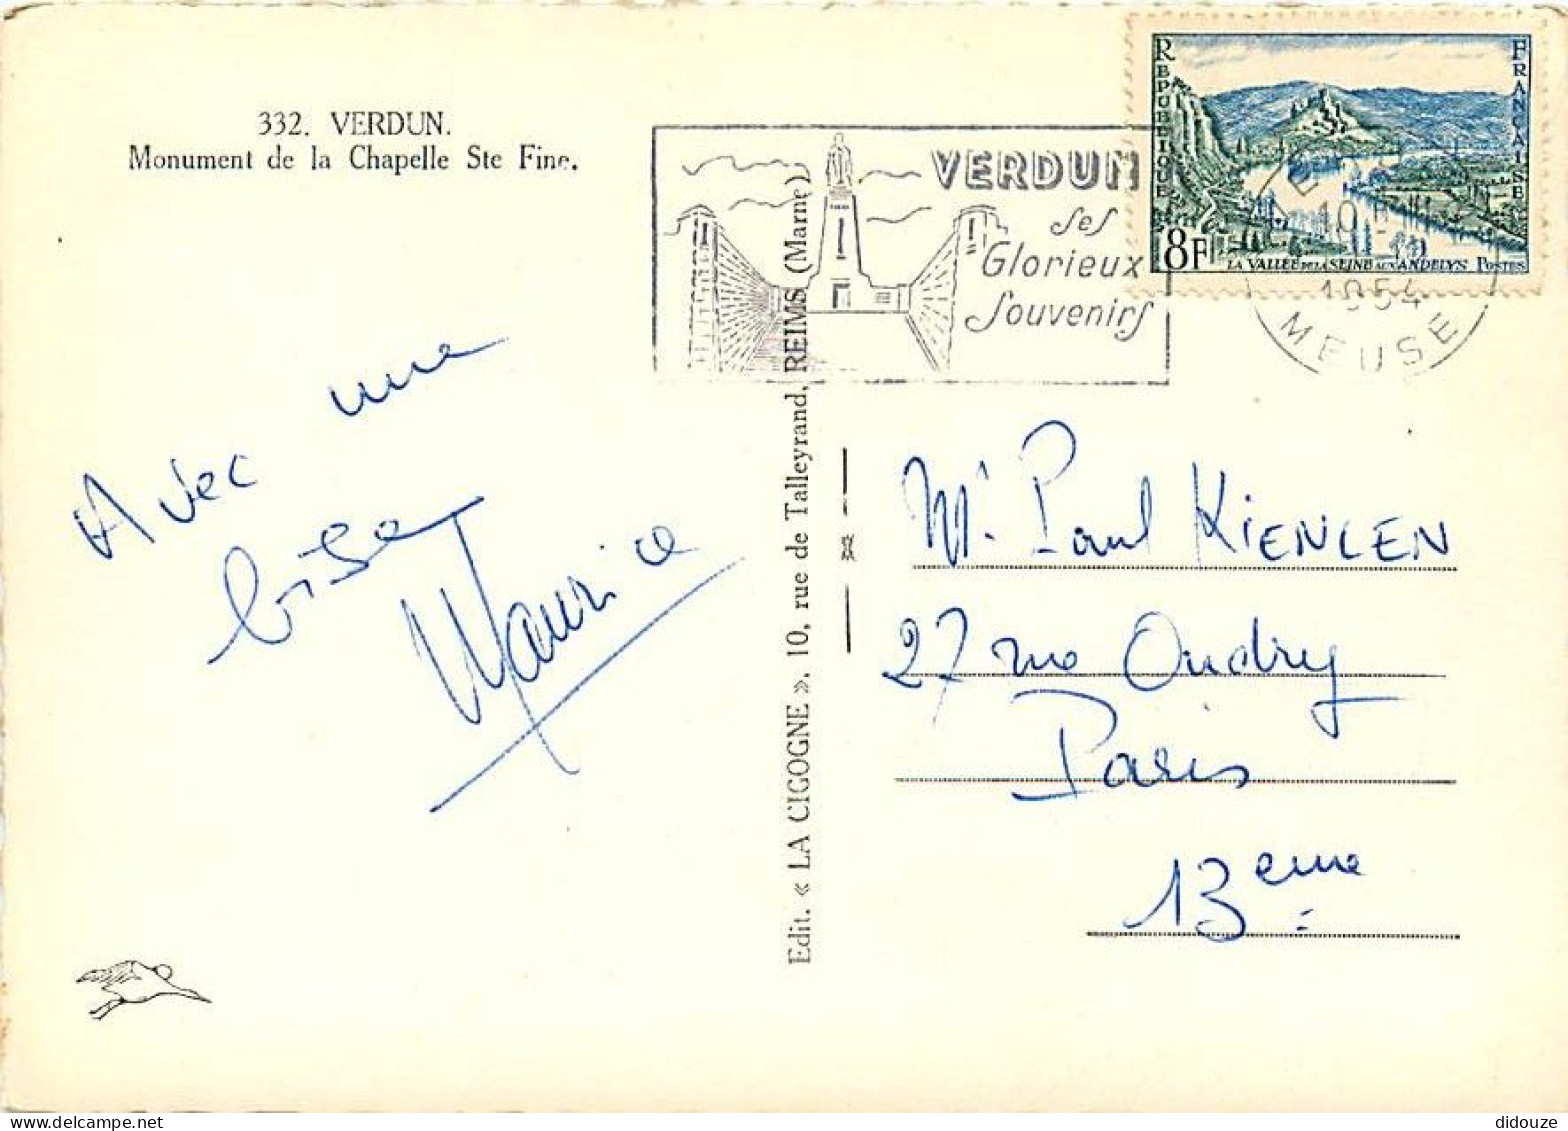 332. VERDUN.
Monument de la Chapelle Ste Fine.
VERDUN
ses
Glorieux
Souvenirs
REPUBLIQUE FRANÇAISE
8F
LA VALLÉE DE LA SEINE AUX ANDELYS POSTES
1954
MEUSE
Avec une
bise
Maurice
Edit. « LA CIGOGNE », 10, rue de Talleyrand, REIMS (Marne)
Mr Paul KIENLEN
27 rue Oudry
Paris
13eme
didouze